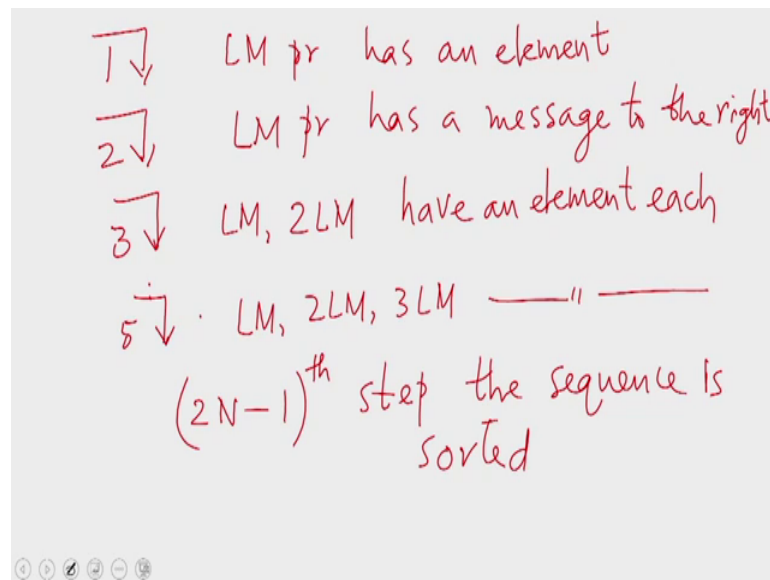 1 LM pr has an element
2 LM pr has a message to the right
3 LM, 2LM have an element each
5 . LM, 2LM, 3LM —— " ——
(2N-1)th step the sequence is
sorted